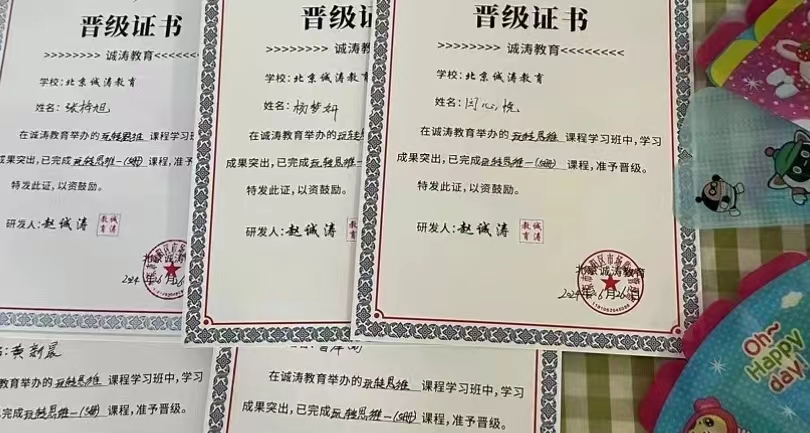 晋级证书
>>>>>>>> 诚涛教育
学校:北京诚涛教育
姓名:
在诚涛教育举办的玩转思维 课程学习班
成果突出,已完成玩转思维一(5册)课程,准予晋级。
特发此证,以资鼓励。
研发人:赵诚涛
诚涛教育
北京诚涛教育
2024年6月26日
晋级证书
>>>>>>>> 诚涛教
学校:北京诚涛教育
姓名:杨梦妍
在诚涛教育举办的玩转
成果突出,已完成玩转思维一
特发此证,以资鼓励。
研发人:赵诚涛
晋级证书
>>>>>>>> 诚涛教育<<<<<<<<
学校:北京诚涛教育
姓名:闫心悦
在诚涛教育举办的玩转思维 课程学习班中,学习
成果突出,已完成玩转思维一(5册)课程,准予晋级。
特发此证,以资鼓励。
研发人:赵诚涛
诚涛教育
北京诚涛教育
2024年6月26日
教育举办的玩转思维 课程学习班中,学习
完成玩转思维一(5册)课程,准予晋级。
在诚涛教育举办的玩转思维 课程学习班中,学习
成果突出,已完成玩转思维一(5册)课程,准予晋级。
Oh~
Happy
day!